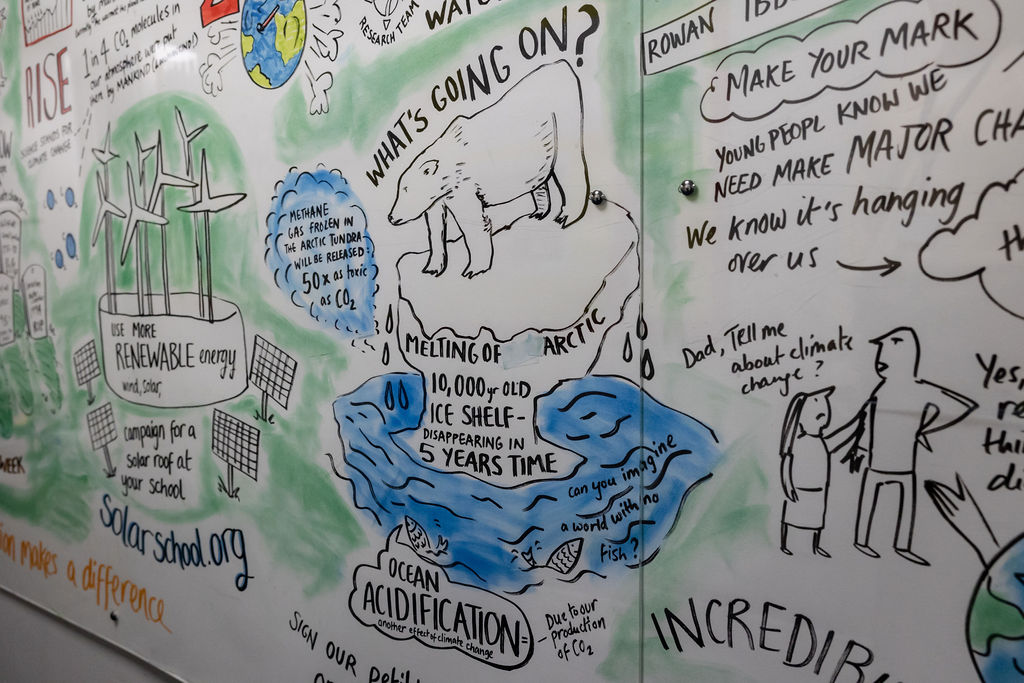 1 in 4 CO2 molecules in
our atmosphere were put
there by MANKIND
RISE
CLIMATE CHANGE
RESEARCH TEAM
WHAT'S GOING ON?
METHANE
GAS FROZEN IN
THE ARCTIC TUNDRA
WILL BE RELEASED:
50x as toxic
as CO2
USE MORE
RENEWABLE energy
wind, solar,
campaign for a
solar roof at
your school
solarschool.org
WEEK
makes a difference
MELTING OF ARCTIC
10,000 yr OLD
ICE SHELF-
DISAPPEARING IN
5 YEARS TIME
can you imagine
a world with no
fish?
OCEAN
ACIDIFICATION=
another effect of climate change
- Due to our
production
of CO2
SIGN OUR
ROWAN
MAKE YOUR MARK
YOUNG PEOPL KNOW WE
NEED MAKE MAJOR CHA
We know it's hanging
over us
Dad, Tell me
about climate
change?
Yes,
INCREDIB